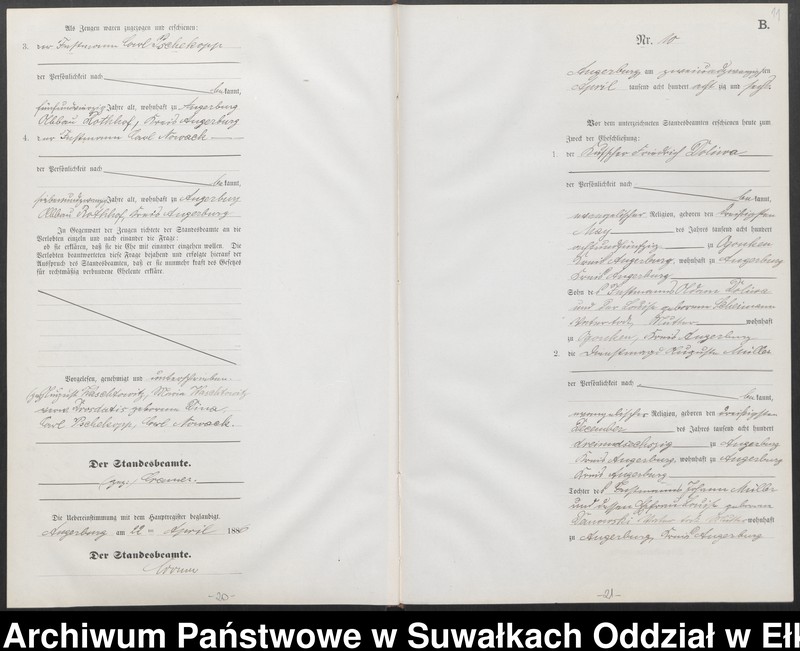 Als Zeugen waren zugezogen und erschienen:
3. der Instmann Carl Pschekopp
der Persönlichkeit nach
be kannt,
fünfundvierzig Jahre alt, wohnhaft zu Angerburg
Abbau Rothhof, Kreis Angerburg
4. der Instmann Carl Nowack
der Persönlichkeit nach
be kannt,
Jahre alt, wohnhaft zu Angerburg
Abbau Rothhof, Kreis Angerburg
In Gegenwart der Zeugen richtete der Standesbeamte an die
Verlobten einzeln und nach einander die Frage:
ob sie erklären, daß sie die Ehe mit einander eingehen wollen. Die
Verlobten beantworteten diese Frage bejahend und erfolgte hierauf der
Ausspruch des Standesbeamten, daß er sie nunmehr kraft des Gesetzes
für rechtmäßig verbundene Eheleute erkläre.
Vorgelesen, genehmigt und unterschrieben
geborene
Carl Pschekopp, Carl Nowack.
Der Standesbeamte.
(gez.)
Die Uebereinstimmung mit dem Hauptregister beglaubigt.
Angerburg am 22 ten April 188
Der Standesbeamte.
-20-
B.
Nr. 10
Angerburg am zweiundzwanzigsten
April tausend acht hundert achtzig und sechs
Vor dem unterzeichneten Standesbeamten erschienen heute zum
Zweck der Eheschließung:
1. der Kutscher Friedrich Doliwa
der Persönlichkeit nach
be kannt,
evangelischer Religion, geboren den dreißigsten
May des Jahres tausend acht hundert
achtundfünfzig zu Gronden
Kreis Angerburg, wohnhaft zu Angerburg
Kreis Angerburg
Sohn des Instmanns Adam Doliwa
und der Louise geborenen
Vater todt, Mutter wohnhaft
zu Gronden, Kreis Angerburg
2. die Dienstmagd Auguste Müller
der Persönlichkeit nach
be kannt,
evangelischer Religion, geboren den dreißigsten
December des Jahres tausend acht hundert
dreiundsechszig zu Angerburg
Kreis Angerburg, wohnhaft zu Angerburg
Kreis Angerburg
Tochter des Instmanns Johann Müller
und dessen Ehefrau Louise geborenen
wohnhaft
zu Angerburg, Kreis Angerburg
-21-
Archiwum Państwowe w Suwałkach Oddział w Ełk